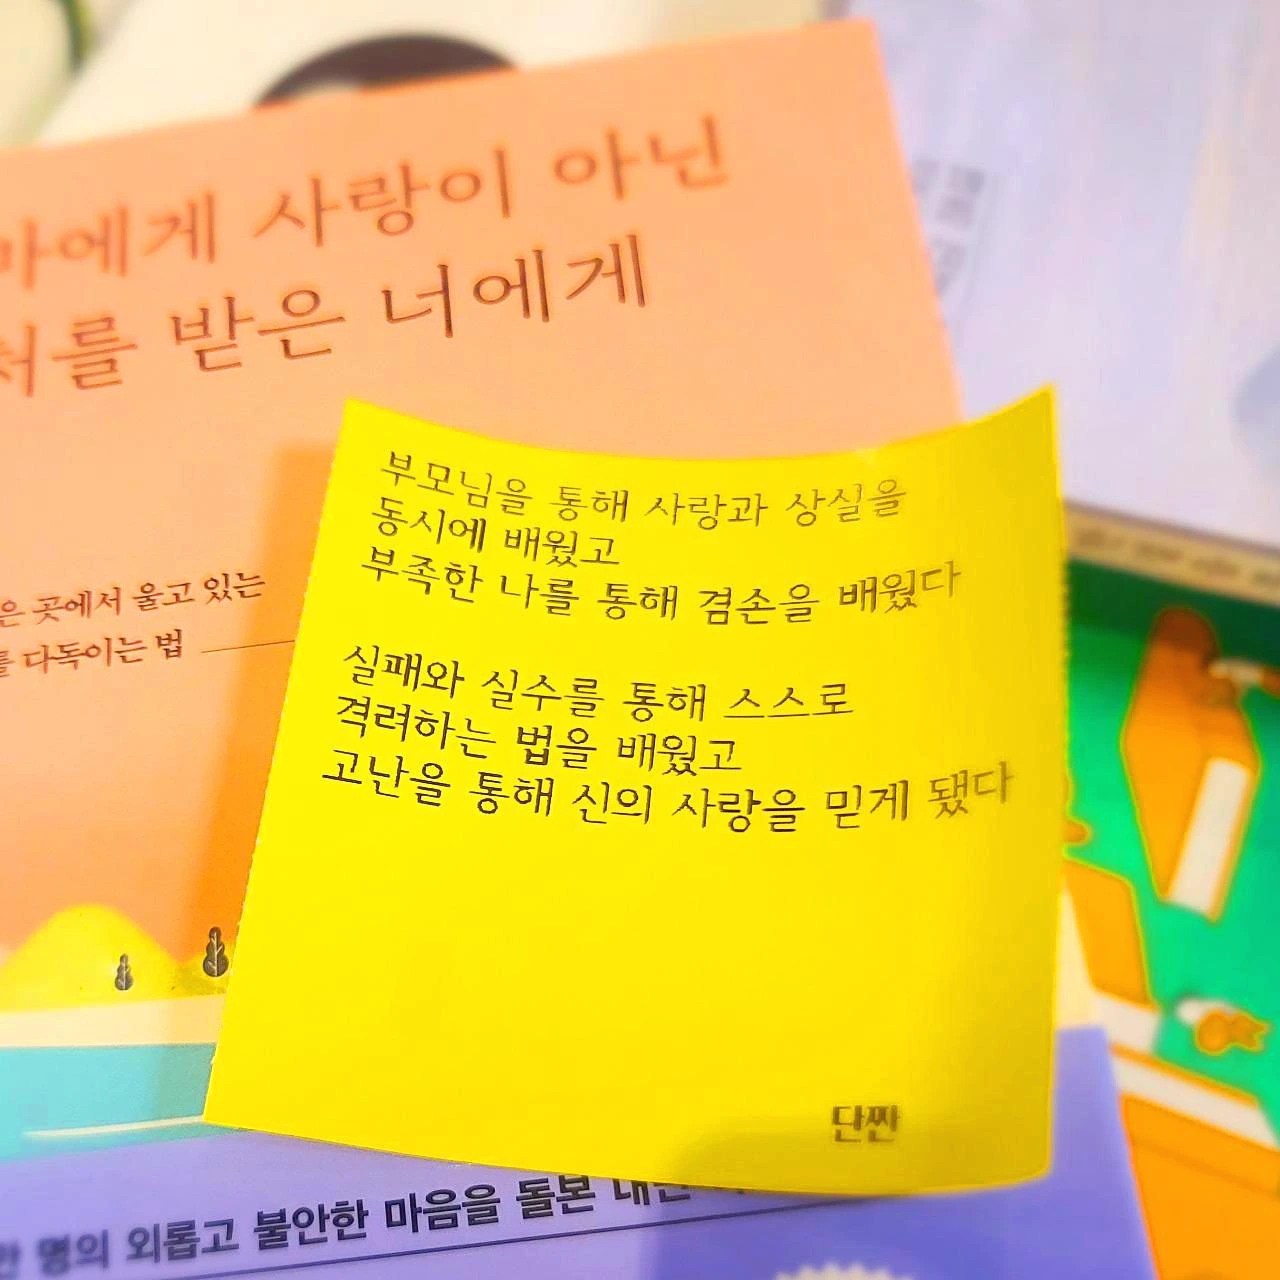 사랑이 아닌
받은 너에게
곳에서 울고 있는
다독이는 법
부모님을 통해 사랑과 상실을
동시에 배웠고
부족한 나를 통해 겸손을 배웠다
실패와 실수를 통해 스스로
격려하는 법을 배웠고
고난을 통해 신의 사랑을 믿게 됐다
단짠
명의 외롭고 불안한 마음을 돌본